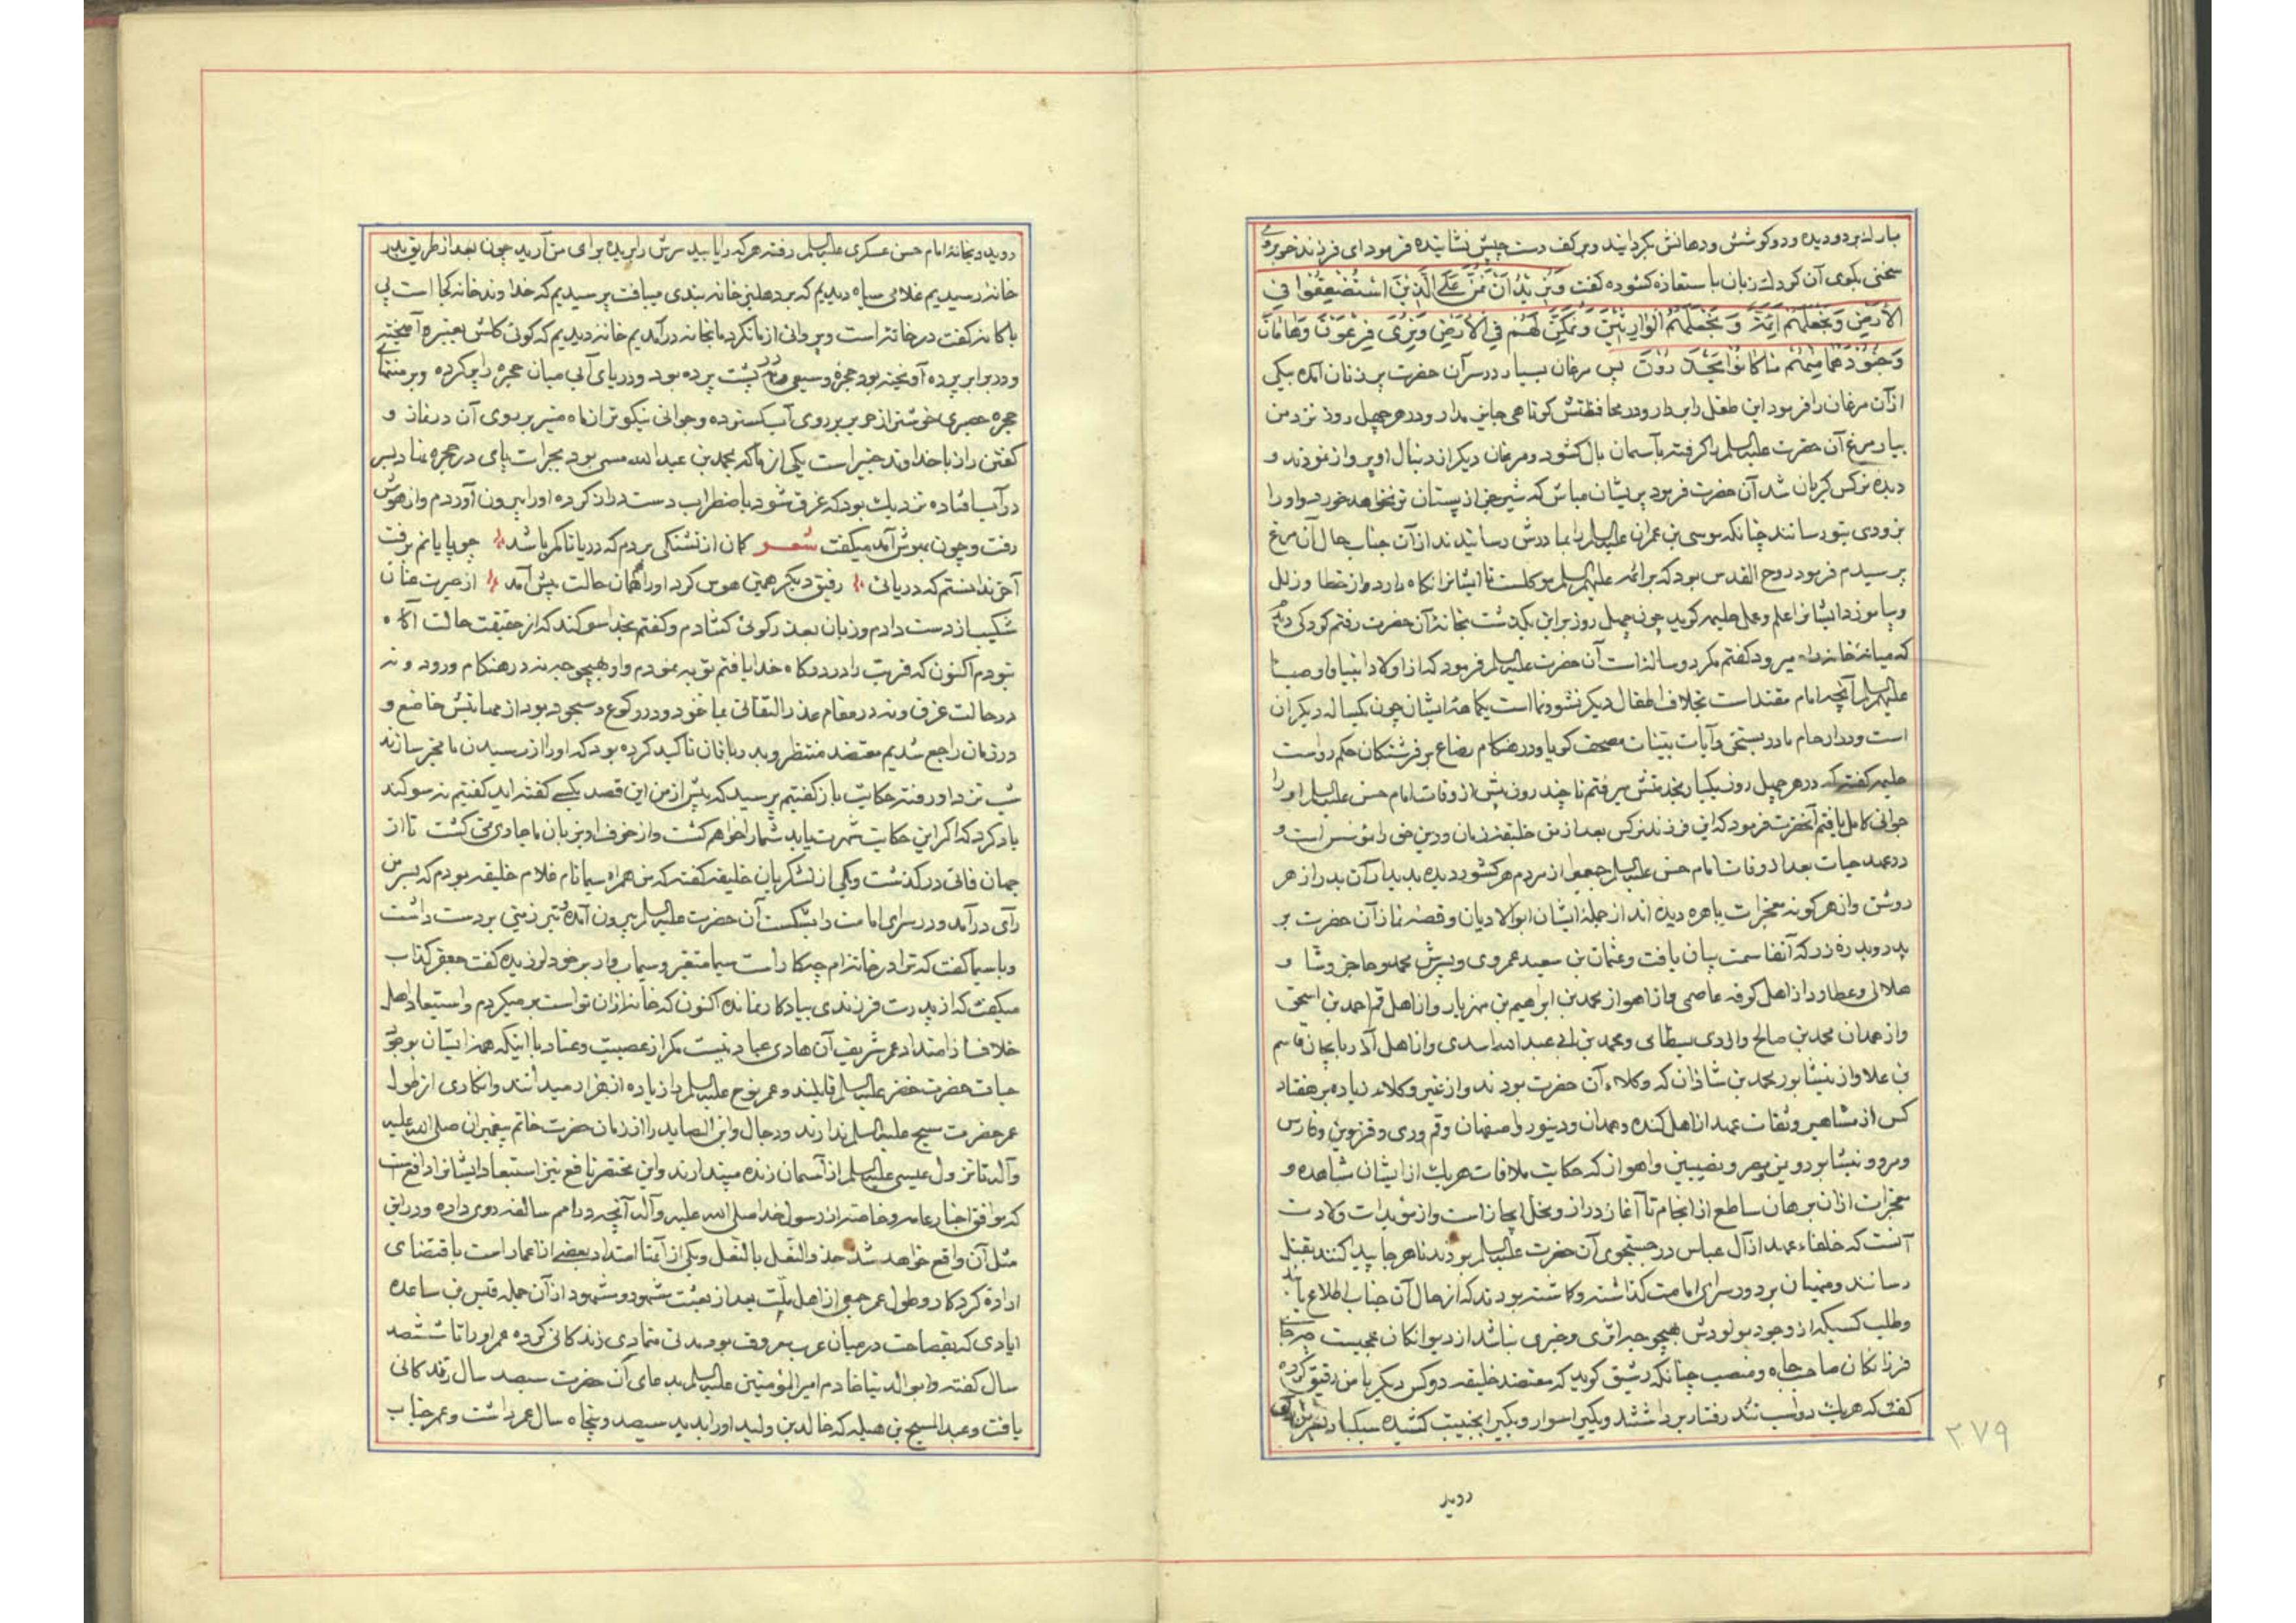 بارك بر دو دیده و دو گوشش و دهانش بگردانید و بر کف دست چپش نشانیده فرمود ای فرزند خوبروی
سخنی بگوی آن کردك زبان باستعاذه گشوده گفت وَنُرِيدُ أَنْ نَمُنَّ عَلَى الَّذِينَ اسْتُضْعِفُوا فِي
الْأَرْضِ وَنَجْعَلَهُمْ أَئِمَّةً وَنَجْعَلَهُمُ الْوَارِثِينَ وَنُمَكِّنَ لَهُمْ فِي الْأَرْضِ وَنُرِيَ فِرْعَوْنَ وَهَامَانَ
وَجُنُودَهُمَا مِنْهُمْ مَا كَانُوا يَحْذَرُونَ پس مرغان بسیار در سر آن حضرت پر زنان آمده بیکی
از آن مرغان را فرمود این طفل را بردار و در محافظتش کوتاهی جایز مدار و در هر چهل روز نزد من
بیار مرغ آن حضرت علیه السلم را گرفته بآسمان بال گشود و مرغان دیگر از دنبال او پرواز نمودند و
دیده نرکس گریان شد آن حضرت فرمود پریشان مباش که شیر جز از پستان تو نخواهد خورد و او را
بزودی بتو رسانند چنانکه موسی بن عمران علیه السلم را بمادرش رسانیدند از آن جناب حال آن مرغ
پرسیدم فرمود روح القدس بود که بر ائمه علیهم السلم موکلست تا ایشانرا نگاه دارد و از خطا و زلل
و بیاموزد ایشانرا علم و عمل حلیمه گوید چون چهل روز بر این بگذشت بخانهٔ آن حضرت رفتم کودکی دیدم
که میانهٔ خانه راه میرود گفتم مگر دو ساله است آن حضرت علیه السلم فرمود که از اولاد انبیا و اوصیا
علیهم السلم آنچه امام مقتداست بخلاف اطفال دیگر نشو و نما است یکماههٔ ایشان چون یکساله دیگران
است و در ارحام مادر بسخن و آیات بینات مصحف گویا و در هنگام رضاع بر فرشتگان حکم رواست
حلیمه گفته که در هر چهل روز یکبار بخدمتش میرفتم تا چند روز پیش از وفات امام حسن علیه السلم او را
جوانی کامل یافتم آنحضرت فرمود که این فرزند نرکس بعد از من خلیفه زمان و دین حق را مؤسس است و
در عهد حیات بعد از وفات امام حسن علیه السلم جمعی از مردم هر کشور دیده بدیدار آن بدر از هر
روشن و از هر گونه معجزات باهره دیده اند از جملهٔ ایشان ابوالادیان و قصهٔ نماز آن حضرت بر
پدر و بدره زر که آنفا سمت بیان یافت و عثمان بن سعید عمروی و پسرش محمد و حاجز و شا و
هلالی و عطار و از اهل کوفه عاصمی و از اهواز محمد بن ابراهیم بن مهزیار و از اهل قم احمد بن اسحق
و از همدان محمد بن صالح و از ری بسطامی و محمد بن ابی عبدالله اسدی و از اهل آذربایجان قاسم
بن علا و از نیشابور محمد بن شاذان که وکلاء آن حضرت بودند و از غیر وکلاء زیاده بر هفتاد
کس از مشاهیر و ثقات عهد از اهل کنده و همدان و دینور و اصفهان و قم و ری و قزوین و فارس
و مرو و نیشابور و یمن و مصر و نصیبین و اهواز که حکایت ملاقات هریك از ایشان شاهده و
معجزات از ان برهان ساطع از انجام تا آغاز دراز و مخل ایجاز است و از مؤیدات ولادت
آنست که خلفاء عهد از آل عباس در جستجوی آن حضرت علیه السلم بودند تا هر جا پیدا کنند بقتل
رسانند و منهیان بر در سرای امامت گذاشته و گماشته بودند که از حال آن جناب اطلاع یابند
و طلب کسیکه از وجود مولودش بهیچوجه اثری و خبری نباشد از دیوانگان عجیبست چه جا
فرزانگان صاحب جاه و منصب چنانکه رشیق گوید که معتضد خلیفه دو کس دیگر با من رفیق کرده
گفت که هریك دو اسب تند رفتار برداشته و یکیرا سوار و یکیرا بجنیبت کشیده سبکبار
روید
۲۷۹
روید و بخانهٔ امام حسن عسکری علیه السلم رفته هر که را یابید سرش را بریده برای من آرید چون بعد از طی طریق بدر
خانه رسیدیم غلامی سیاه دیدیم که بر دهلیز خانه بندی میبافت پرسیدیم که خداوند خانه کجا است بی
باکانه گفت در خانه است و پروائی از ما نکرد ما بخانه درآمدیم خانه دیدیم که گوئی گلش بعنبره آمیخته
و در برابر پرده آویخته بود حجرهٔ وسیعی در پشت پرده بود و دریای آبی میان حجره را پر کرده و بر منتهای
حجره حصیری خوشتر از حریر بر روی آب گسترده و جوانی نیکوتر از ماه منیر بر روی آن در نماز و
گفتن راز با خداوند خبیر است یکی از ما که محمد بن عبدالله مسمی بود بجرات پای در حجره نهاد بسر
در آب افتاده نزدیك بود که غرق شود باضطراب دست دراز کرده او را بیرون آوردم و از هوش
رفت و چون بهوش آمد میگفت شعر گمان از تشنگی بردم که دریا تا کمر باشد چو پایانم برفت
آخر ندانستم که دریائی رفیق دیگر همین هوس کرد او را همان حالت پیش آمد از حیرت عنان
شکیب از دست دادم و زبان بعذر گوئی گشادم و گفتم بخدا سوگند که از حقیقت حالت آگاه
نبودم اکنون که قربت را در درگاه خدا یافتم توبه نمودم و او بهیچوجه نه در هنگام ورود و نه
در حالت غرق و نه در مقام عذر التفاتی بما نمود و در رکوع و سجود بود از مهابتش خاضع و
در زمان راجع شدیم معتضد منتظر و بدربانان تاکید کرده بود که او را از رسیدن ما مخبر سازند
شب نزد او رفته حکایت باز گفتیم پرسید که پیش از من این قصه بکسی گفته اید گفتیم نه سوگند
یاد کرد که اگر این حکایت شهرت یابد شما را خواهم کشت و از خوف او بزبان ما جاری نمی گشت تا از
جهان فانی درگذشت و یکی از لشکریان خلیفه گفته که من همراه سیما نام غلام خلیفه بودم که بسر من
رای درآمد و در سرای امامت را بشکست آن حضرت علیه السلم بیرون آمده تبر زینی بر دست داشت
و با سیما گفت که ترا در خانه ام چکار است سیما متغیر و سیماب وار بر خود لرزیده گفت جعفر کذاب
میگفت که از پدرت فرزندی بیادگار نمانده اکنون که خانه از ان تو است بر میگردم و استبعاد اهل
خلاف از امتداد عمر شریف آن هادی عباد نیست مگر از عصبیت و عناد با اینکه همهٔ ایشان بوجود
حیات حضرت خضر علیه السلم قایلند و عمر نوح علیه السلم را زیاده از هزار میدانند و انکاری از طول
عمر حضرت مسیح علیه السلم ندارند و دجال و ابن الصاید را از زمان حضرت خاتم پیغمبران صلی الله علیه
و آله تا نزول عیسی علیه السلم از آسمان زنده میپندارند و این مختصر نافع نیز استبعاد ایشانرا دافعست
که موافق اخبار عامه و خاصه از رسول خدا صلی الله علیه و آله آنچه در امم سالفه روی داده و در این
مثل آن واقع خواهد شد حذو النعل بالنعل و یکی از آنها امتداد بعضی از اعمار است باقتضای
ارادهٔ کردکار و طول عمر جمعی از اهل ملت بعد از بعثت مشهود و مشهور از آن جمله قس بن ساعده
ایادی که بفصاحت در میان عرب معروف بود مدتی متمادی زندگانی کرده عمر او را تا ششصد
سال گفته و ابوالدنیا خادم امیرالمؤمنین علیه السلم بدعای آن حضرت سیصد سال زندگانی
یافت و عبدالمسیح بن هبله که خالد بن ولید او را بدید سیصد و پنجاه سال عمر داشت و عمر جناب